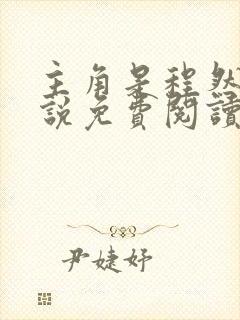 主角是程然
說免費閱讀
尹婕妤